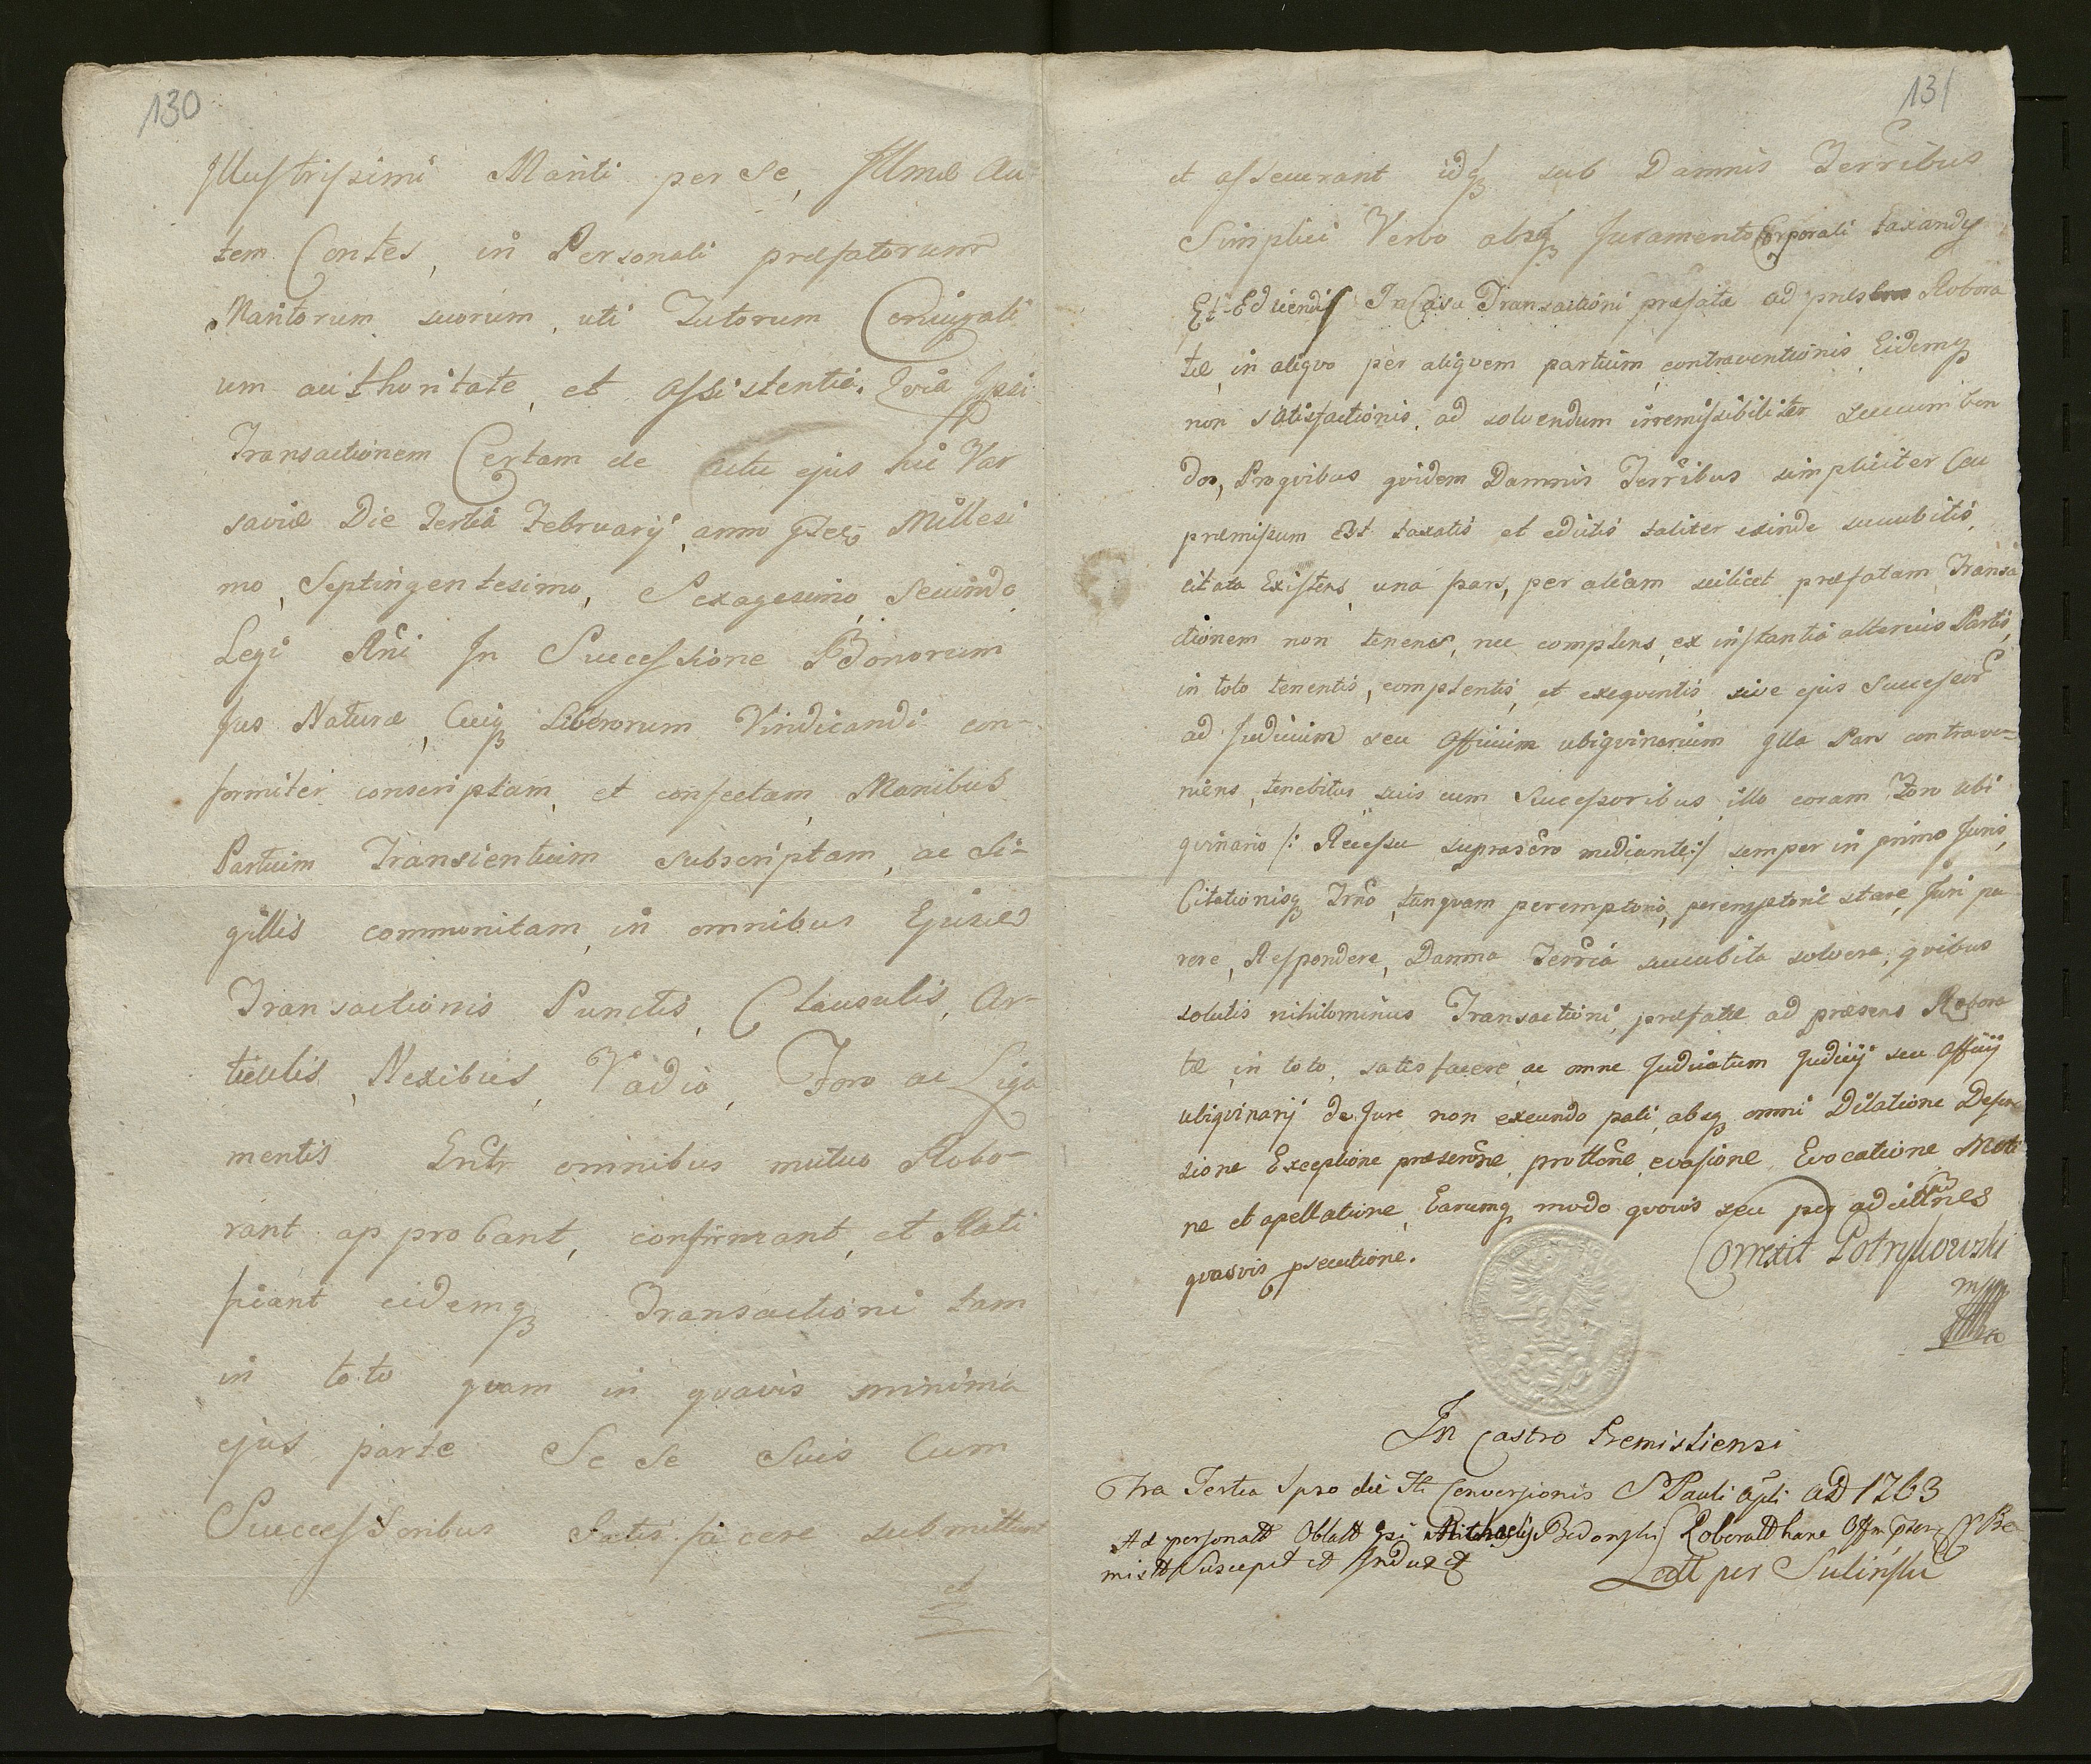 130
Illustrissimi Mariti per se, Illmæ Au
tem Contes, in Personali præfatorum
Maritorum suorum, uti Tutorum Coniugali
um authoritate, et assistentia. Quia Ipsi
Transactionem Certam de actu ejus hic Var
saviæ Die tertia Februarij, anno Millesi
mo, Septingentesimo, Sexagesimo, Secundo
Legi Rñi In Successione Bonorum
Jus Naturæ, Cuiqꝫ Liberorum Vindicandi con-
formiter conscriptam, et confectam, Manibus
Partium Transientium subscriptam, ac Si-
gillis communitam, in omnibus Ejusd
Transactionis Punctis, Clausulis, Ar-
ticulis, Nexibus, Vadio, Foro ac Liga
mentis omnibus mutuo Robo-
rant approbant, confirmant, et Rati
ficant eidemqꝫ Transactioni tam
in toto quam in quavis minima
ejus parte Se se Suis Cum
Successoribus Satisfacere submittunt
et
131
et assecurant idqꝫ sub Damnis Terribus
Simplici Verbo absqꝫ Juramento Corporali taxandis
Et Educendis In Casu Transactioni præfatæ ad præs Robora
tæ, in aliquo per aliquem partium contraventionis Eidemqꝫ
non satisfactionis, ad solvendum irremissibiliter succumben
dos, Proquibus quidem Damnis Terribus simpliciter ceu
præmissum est taxatis et eductis taliter exinde succubitis,
citata Existens, una pars, per aliam scilicet præfatam Transa
ctionem non tenens, nec complens, ex instantia alterius Partis,
in toto tenentis, complentis, et exequentis, sive ejus Successorũ
ad Judicium seu Officium ubiquinarium Illa Pars contrave-
niens, tenebitur suis cum Successoribus, illo coram Foro ubi
quinario /: Recessu suprascro mediante :/ semper in primo Juris,
Citationisqꝫ Trno, tanquam peremptorio, peremptorie stare, Juri pa
rere, Respondere, Damna Terria succubita solvere, quibus
solutis nihilominus Transactioni, præfatæ ad præsens Robora
tæ in toto, satisfacere ac omne Judicatum Judicij seu Officij
ubiquinarij de Jure non exeundo pati, absqꝫ omni Dilatione Defen
sione Exceptione evasione Evocatione Motio
ne et apellatione, Earumqꝫ modo quovis seu per adcittnes
quasvis psecutione.
Correxit Potrykowski
mpp
In Castro Premisliensi
Fra Tertia Ipso die Fti Conversionis S Pauli Apli AD 1763
Ad personall Oblatt Gsi Michaelis Offm
mist Suscepit et Induxit
Lectt per Sulinski